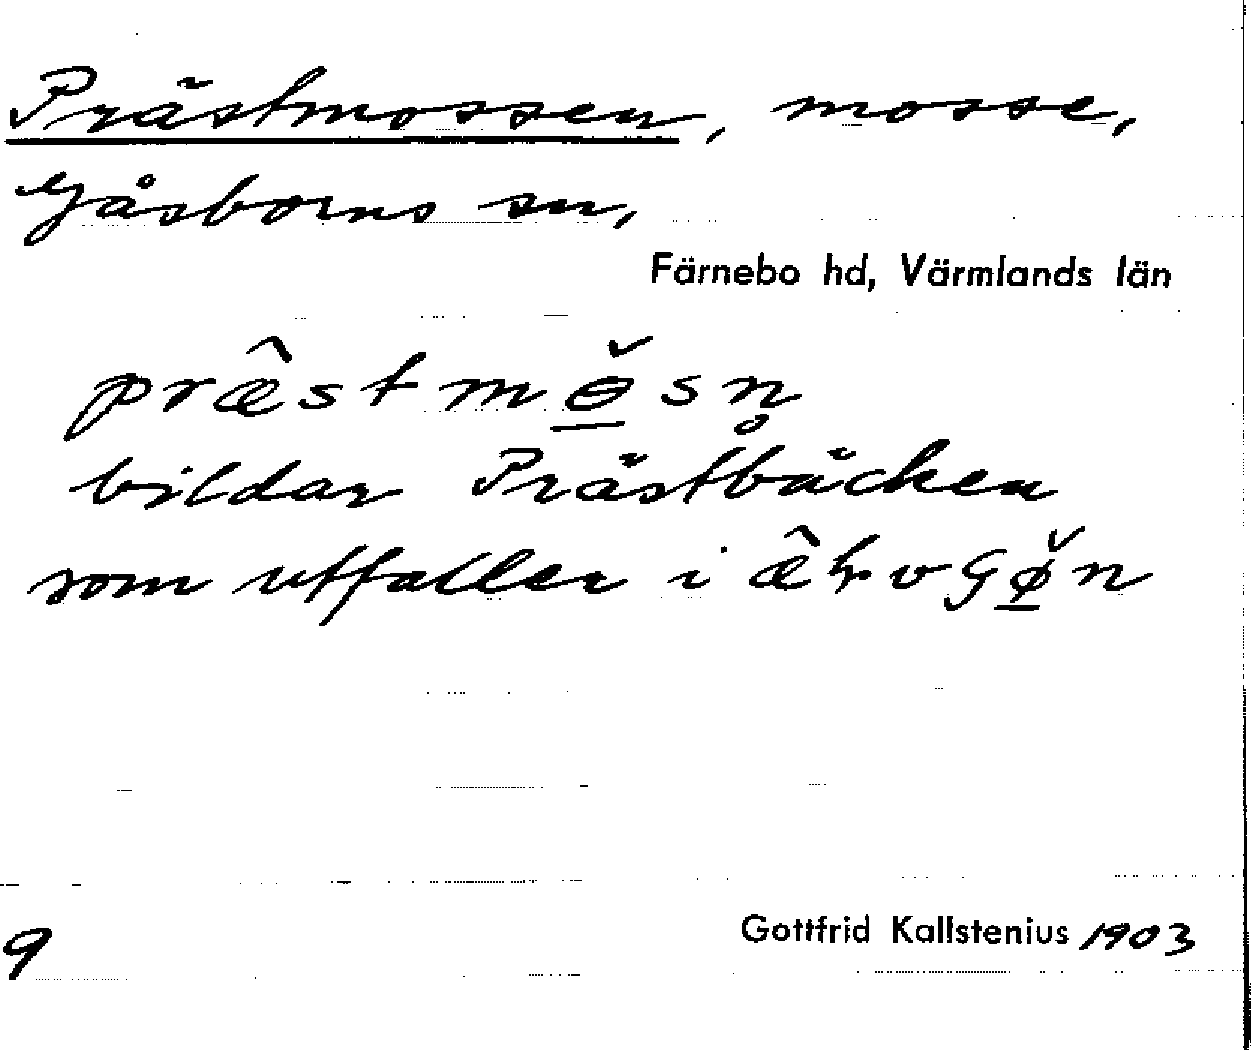 Prästmossen, mosse,
Gåsborns sn,
Färnebo hd, Värmlands län
præ̂stmɵ̠̌sn̥
bildar Prästbäcken
som utfaller i
9
Gottfrid Kallstenius 1903